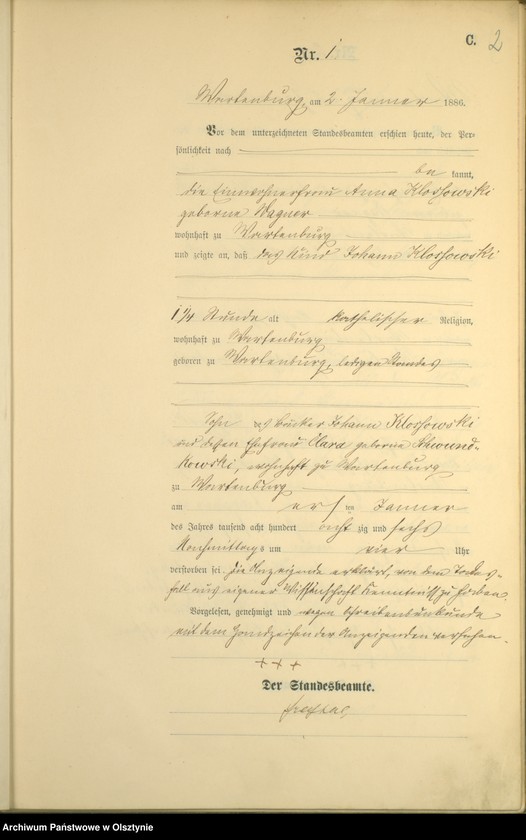 C. 2
Nr. 1
Wartenburg, am 2. Januar 1886.
Vor dem unterzeichneten Standesbeamten erschien heute, der Per-
sönlichkeit nach
be kannt,
die Einwohnerfrau Anna Klossowski
geborne Wagner
wohnhaft zu Wartenburg
und zeigte an, daß das Kind Johann Klossowski
1 1/4 Stunde alt katholischer Religion,
wohnhaft zu Wartenburg
geboren zu Wartenburg, ledigen Standes
Sohn des Johann Klossowski
und dessen Ehefrau Clara geborne
kowski, wohnhaft zu Wartenburg
zu Wartenburg
am ersten Januar
des Jahres tausend acht hundert acht zig und sechs
Nachmittags um vier Uhr
verstorben sei. Die Anzeigende erklärt, von dem Todes-
fall aus eigener Wissenschaft Kenntniß zu haben.
Vorgelesen, genehmigt und wegen Schreibensunkunde
mit dem Handzeichen der Anzeigenden versehen.
+++
Der Standesbeamte.
Archiwum Państwowe w Olsztynie